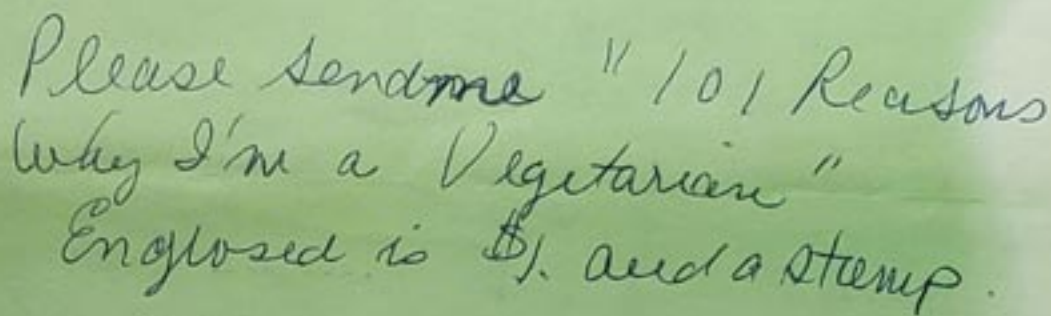 Please send me "101 Reasons
Why I'm a Vegetarian"
Englosed is $1. and a stamp.